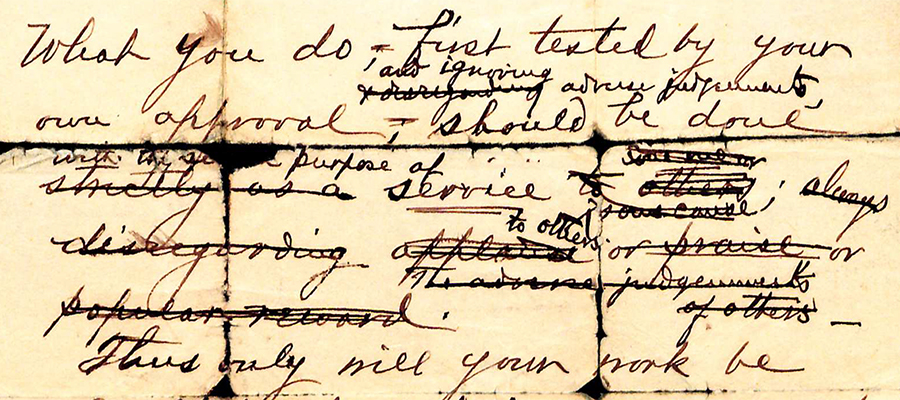 What you do, – first tested by your
, and ignoring
& disregarding adverse judgements,
own approval, – should be done
with the purpose of
strictly as a service to others ; always
some cause
to others
disregarding applause or praise or
The adverse judgements
popular reward. of others —
Thus only will your work be